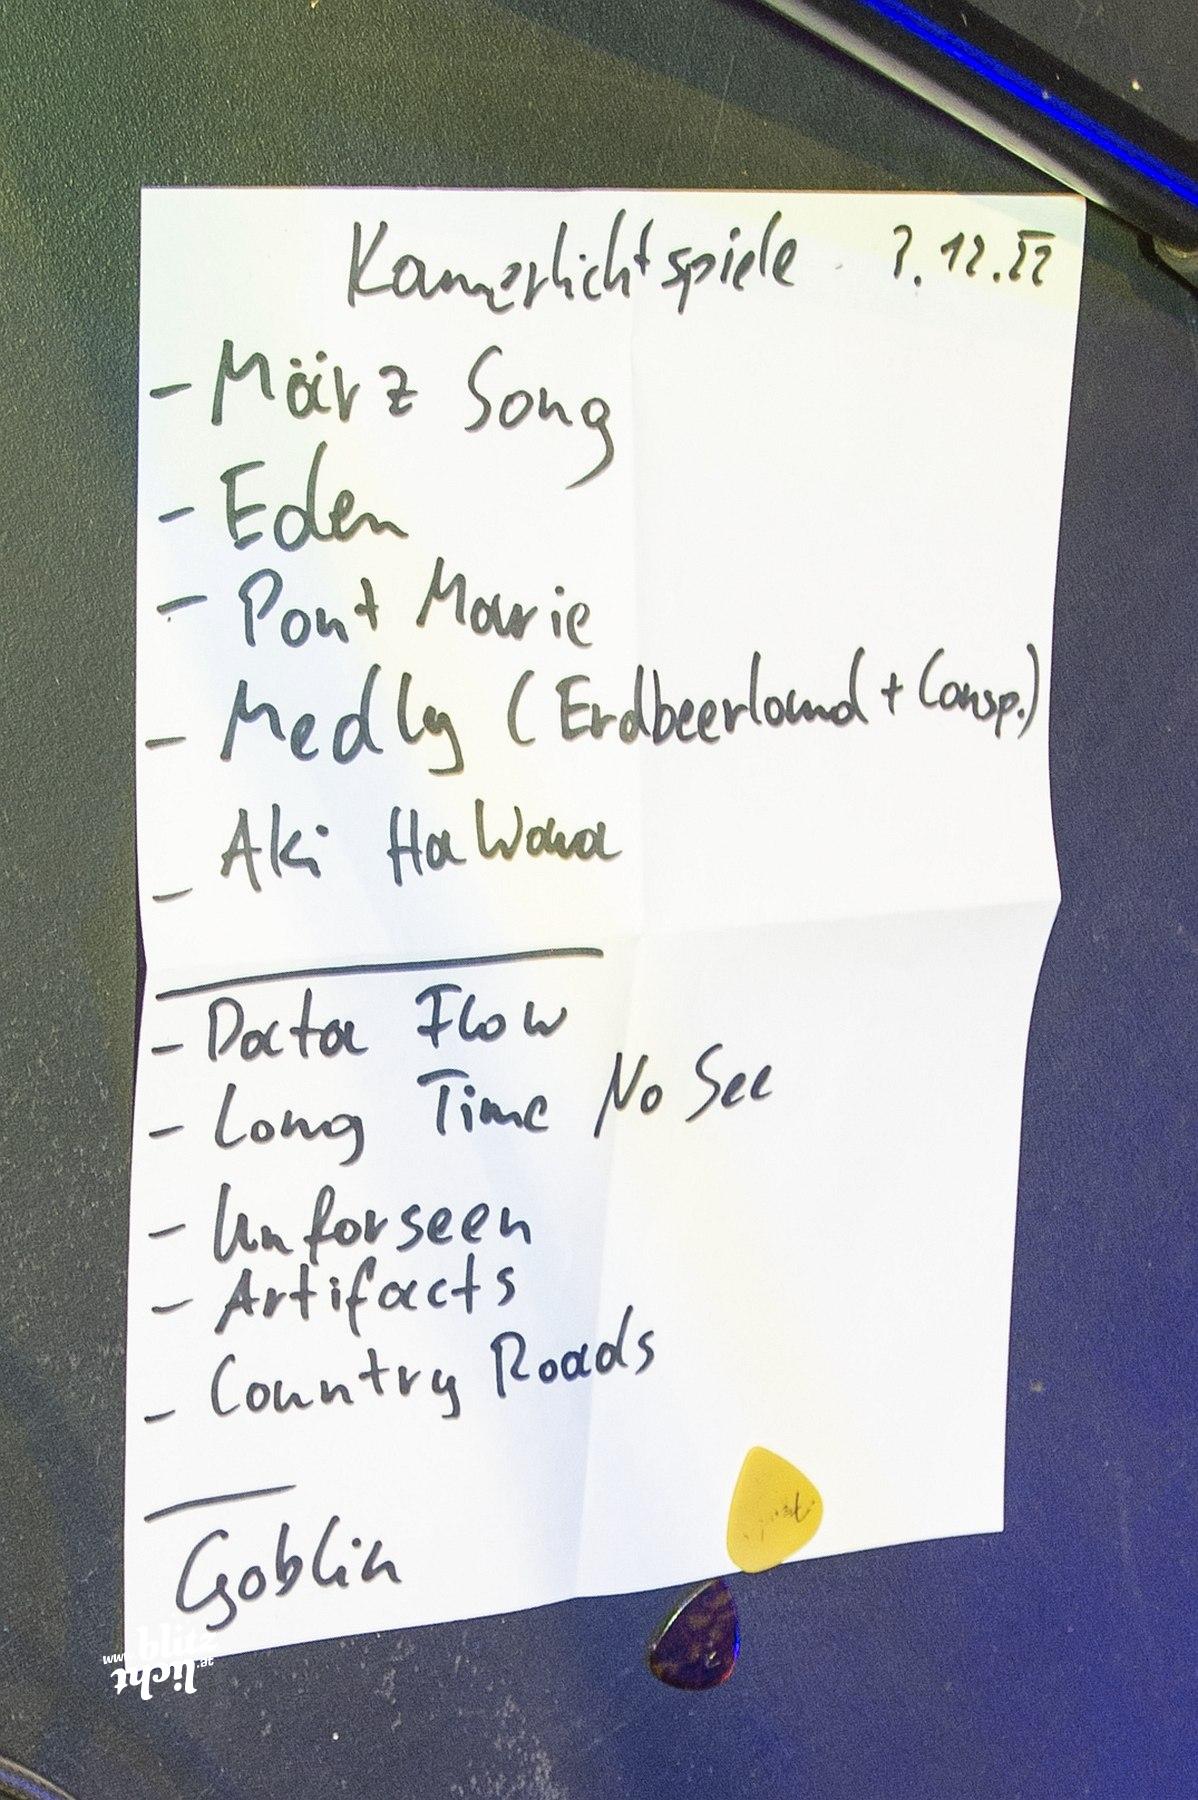 Kammerlichtspiele ?.12.22
- März Song
- Eden
- Pont Marie
- Medly (Erdbeerland + Consp.)
- Aki HaWaua
- Data Flow
- Long Time No See
- Unforseen
- Artifacts
- Country Roads
Goblin
www.blitz
licht.at